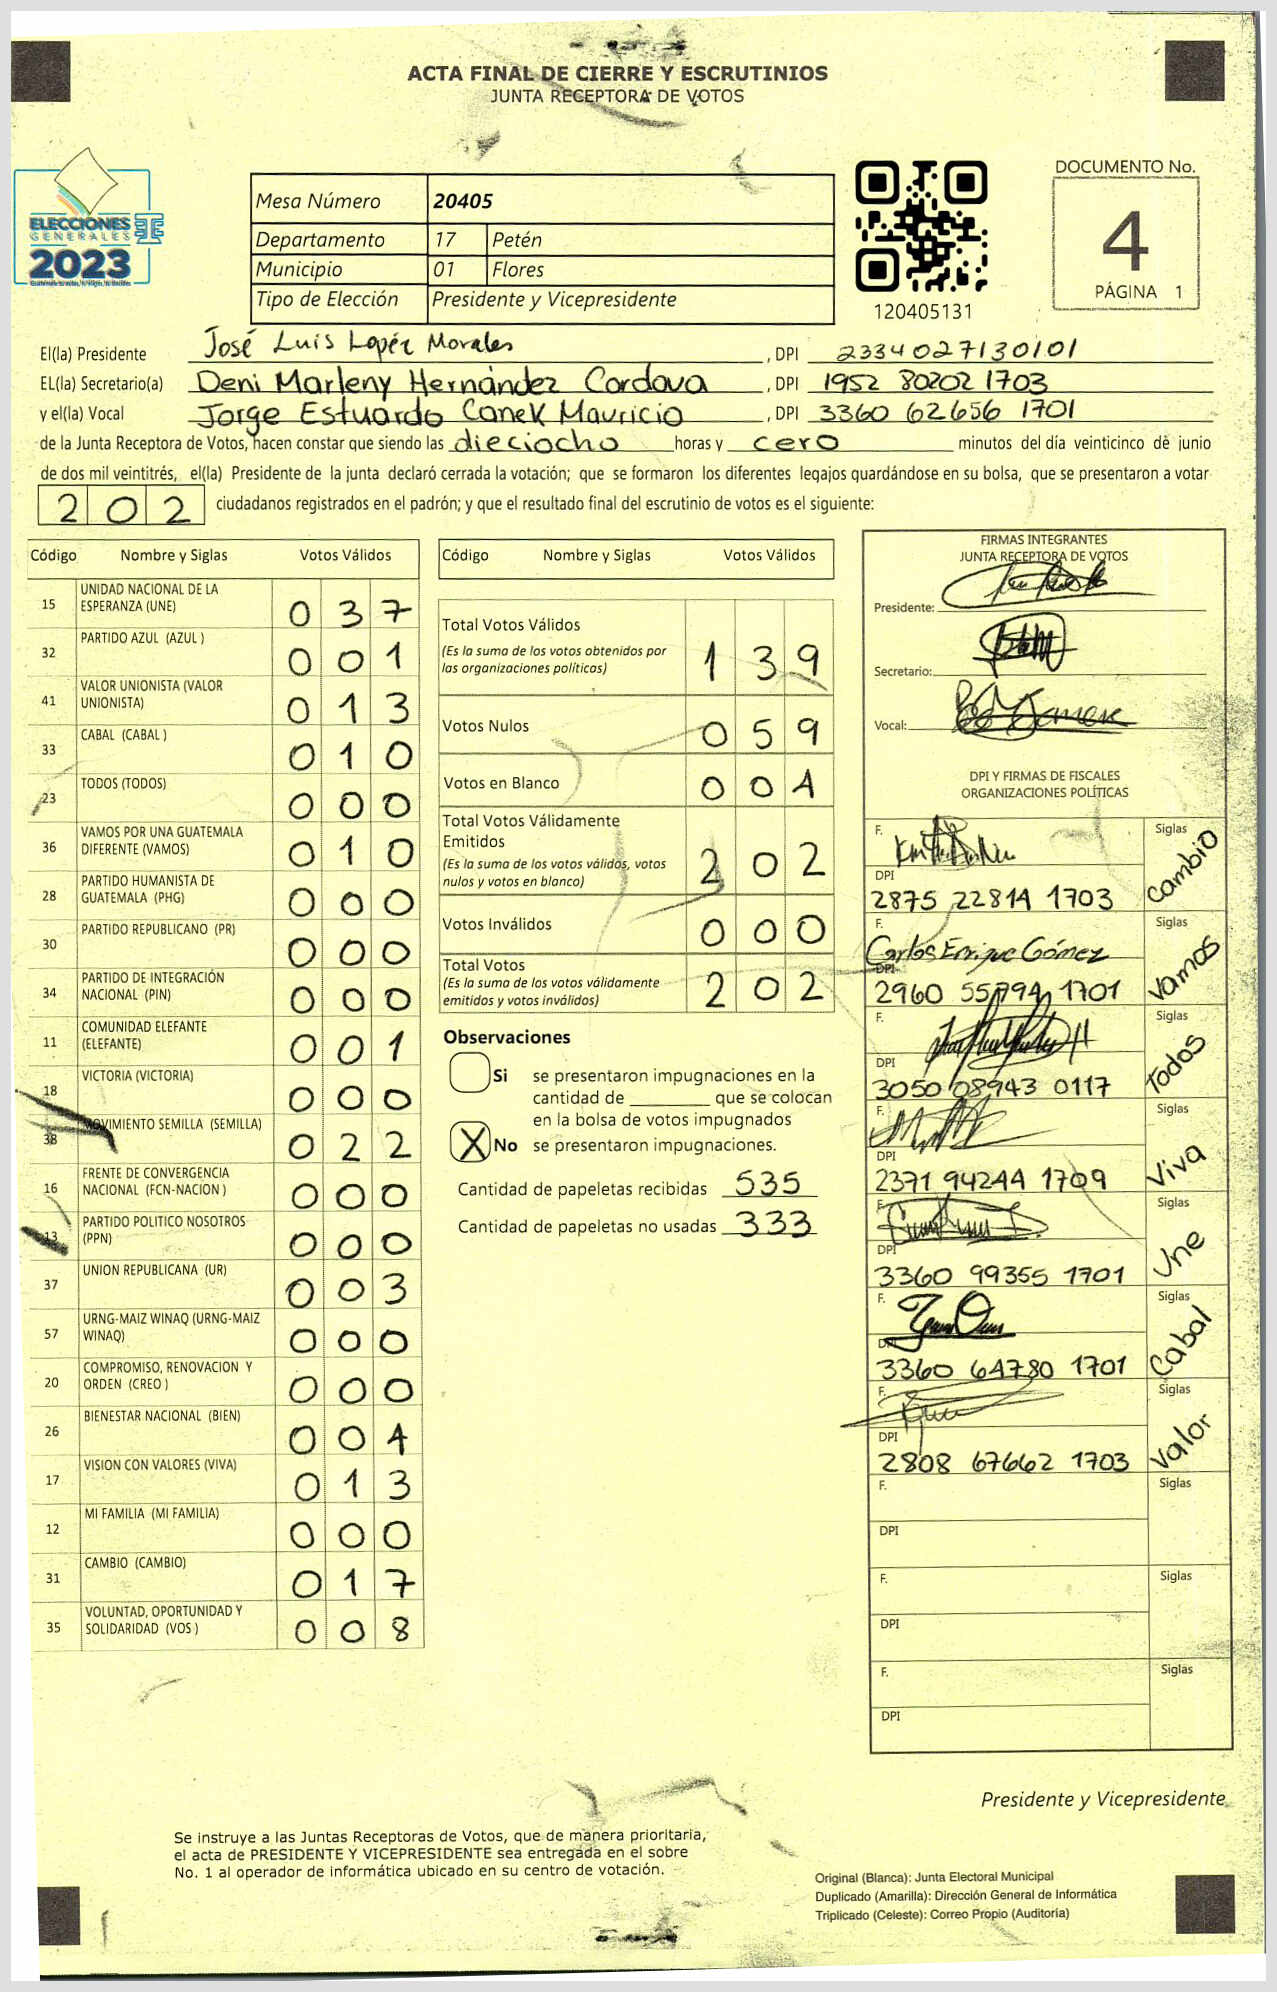 ACTA FINAL DE CIERRE Y ESCRUTINIOS
JUNTA RECEPTORA DE VOTOS
ELECCIONES
GENERALES
2023
Mesa Número 20405
Departamento 17 Petén
Municipio 01 Flores
Tipo de Elección Presidente y Vicepresidente
120405131
DOCUMENTO No.
4
PÁGINA 1
El(la) Presidente José Luis Lopéz Morales, DPI 2334027130101
EL(la) Secretario(a) Deni Marleny Hernández Cordova, DPI 1952 80202 1703
y el(la) Vocal Jorge Estuardo Canek Mauricio, DPI 3360 62656 1701
de la Junta Receptora de Votos, hacen constar que siendo las dieciocho horas y cero minutos del día veinticinco de junio
de dos mil veintitrés, el(la) Presidente de la junta declaró cerrada la votación; que se formaron los diferentes legajos quardándose en su bolsa, que se presentaron a votar
202 ciudadanos registrados en el padrón; y que el resultado final del escrutinio de votos es el siguiente:
Código Nombre y Siglas Votos Válidos
15 UNIDAD NACIONAL DE LA ESPERANZA (UNE) 037
32 PARTIDO AZUL (AZUL ) 001
41 VALOR UNIONISTA (VALOR UNIONISTA) 013
33 CABAL (CABAL ) 010
23 TODOS (TODOS) 000
36 VAMOS POR UNA GUATEMALA DIFERENTE (VAMOS) 010
28 PARTIDO HUMANISTA DE GUATEMALA (PHG) 000
30 PARTIDO REPUBLICANO (PR) 000
34 PARTIDO DE INTEGRACIÓN NACIONAL (PIN) 000
11 COMUNIDAD ELEFANTE (ELEFANTE) 001
18 VICTORIA (VICTORIA) 000
38 MOVIMIENTO SEMILLA (SEMILLA) 022
16 FRENTE DE CONVERGENCIA NACIONAL (FCN-NACION ) 000
13 PARTIDO POLITICO NOSOTROS (PPN) 000
37 UNION REPUBLICANA (UR) 003
57 URNG-MAIZ WINAQ (URNG-MAIZ WINAQ) 000
20 COMPROMISO, RENOVACION Y ORDEN (CREO ) 000
26 BIENESTAR NACIONAL (BIEN) 004
17 VISION CON VALORES (VIVA) 013
12 MI FAMILIA (MI FAMILIA) 000
31 CAMBIO (CAMBIO) 017
35 VOLUNTAD, OPORTUNIDAD Y SOLIDARIDAD (VOS ) 008
Código Nombre y Siglas Votos Válidos
Total Votos Válidos 139
(Es la suma de los votos obtenidos por
las organizaciones políticas)
Votos Nulos 059
Votos en Blanco 004
Total Votos Válidamente
Emitidos 202
(Es la suma de los votos válidos, votos
nulos y votos en blanco)
Votos Inválidos 000
Total Votos 202
(Es la suma de los votos válidamente
emitidos y votos inválidos)
Observaciones
Si se presentaron impugnaciones en la
cantidad de ________ que se colocan
en la bolsa de votos impugnados
X No se presentaron impugnaciones.
Cantidad de papeletas recibidas 535
Cantidad de papeletas no usadas 333
FIRMAS INTEGRANTES
JUNTA RECEPTORA DE VOTOS
Presidente:
Secretario:
Vocal:
DPI Y FIRMAS DE FISCALES
ORGANIZACIONES POLÍTICAS
F. Siglas Cambio
DPI
2875 22814 1703
F. Carlos Enrique Gómez Siglas Vamos
DPI
2960 55794 1701
F. Siglas Todos
DPI
3050 08943 0117
F. Siglas Viva
DPI
2371 94244 1709
F. Siglas Une
DPI
3360 99355 1701
F. Siglas Cabal
DPI
3360 64780 1701
F. Siglas Valor
DPI
2808 67662 1703
F. Siglas
DPI
F. Siglas
DPI
F. Siglas
DPI
Presidente y Vicepresidente
Se instruye a las Juntas Receptoras de Votos, que de manera prioritaria,
el acta de PRESIDENTE Y VICEPRESIDENTE sea entregada en el sobre
No. 1 al operador de informática ubicado en su centro de votación.
Original (Blanca): Junta Electoral Municipal
Duplicado (Amarilla): Dirección General de Informática
Triplicado (Celeste): Correo Propio (Auditoria)